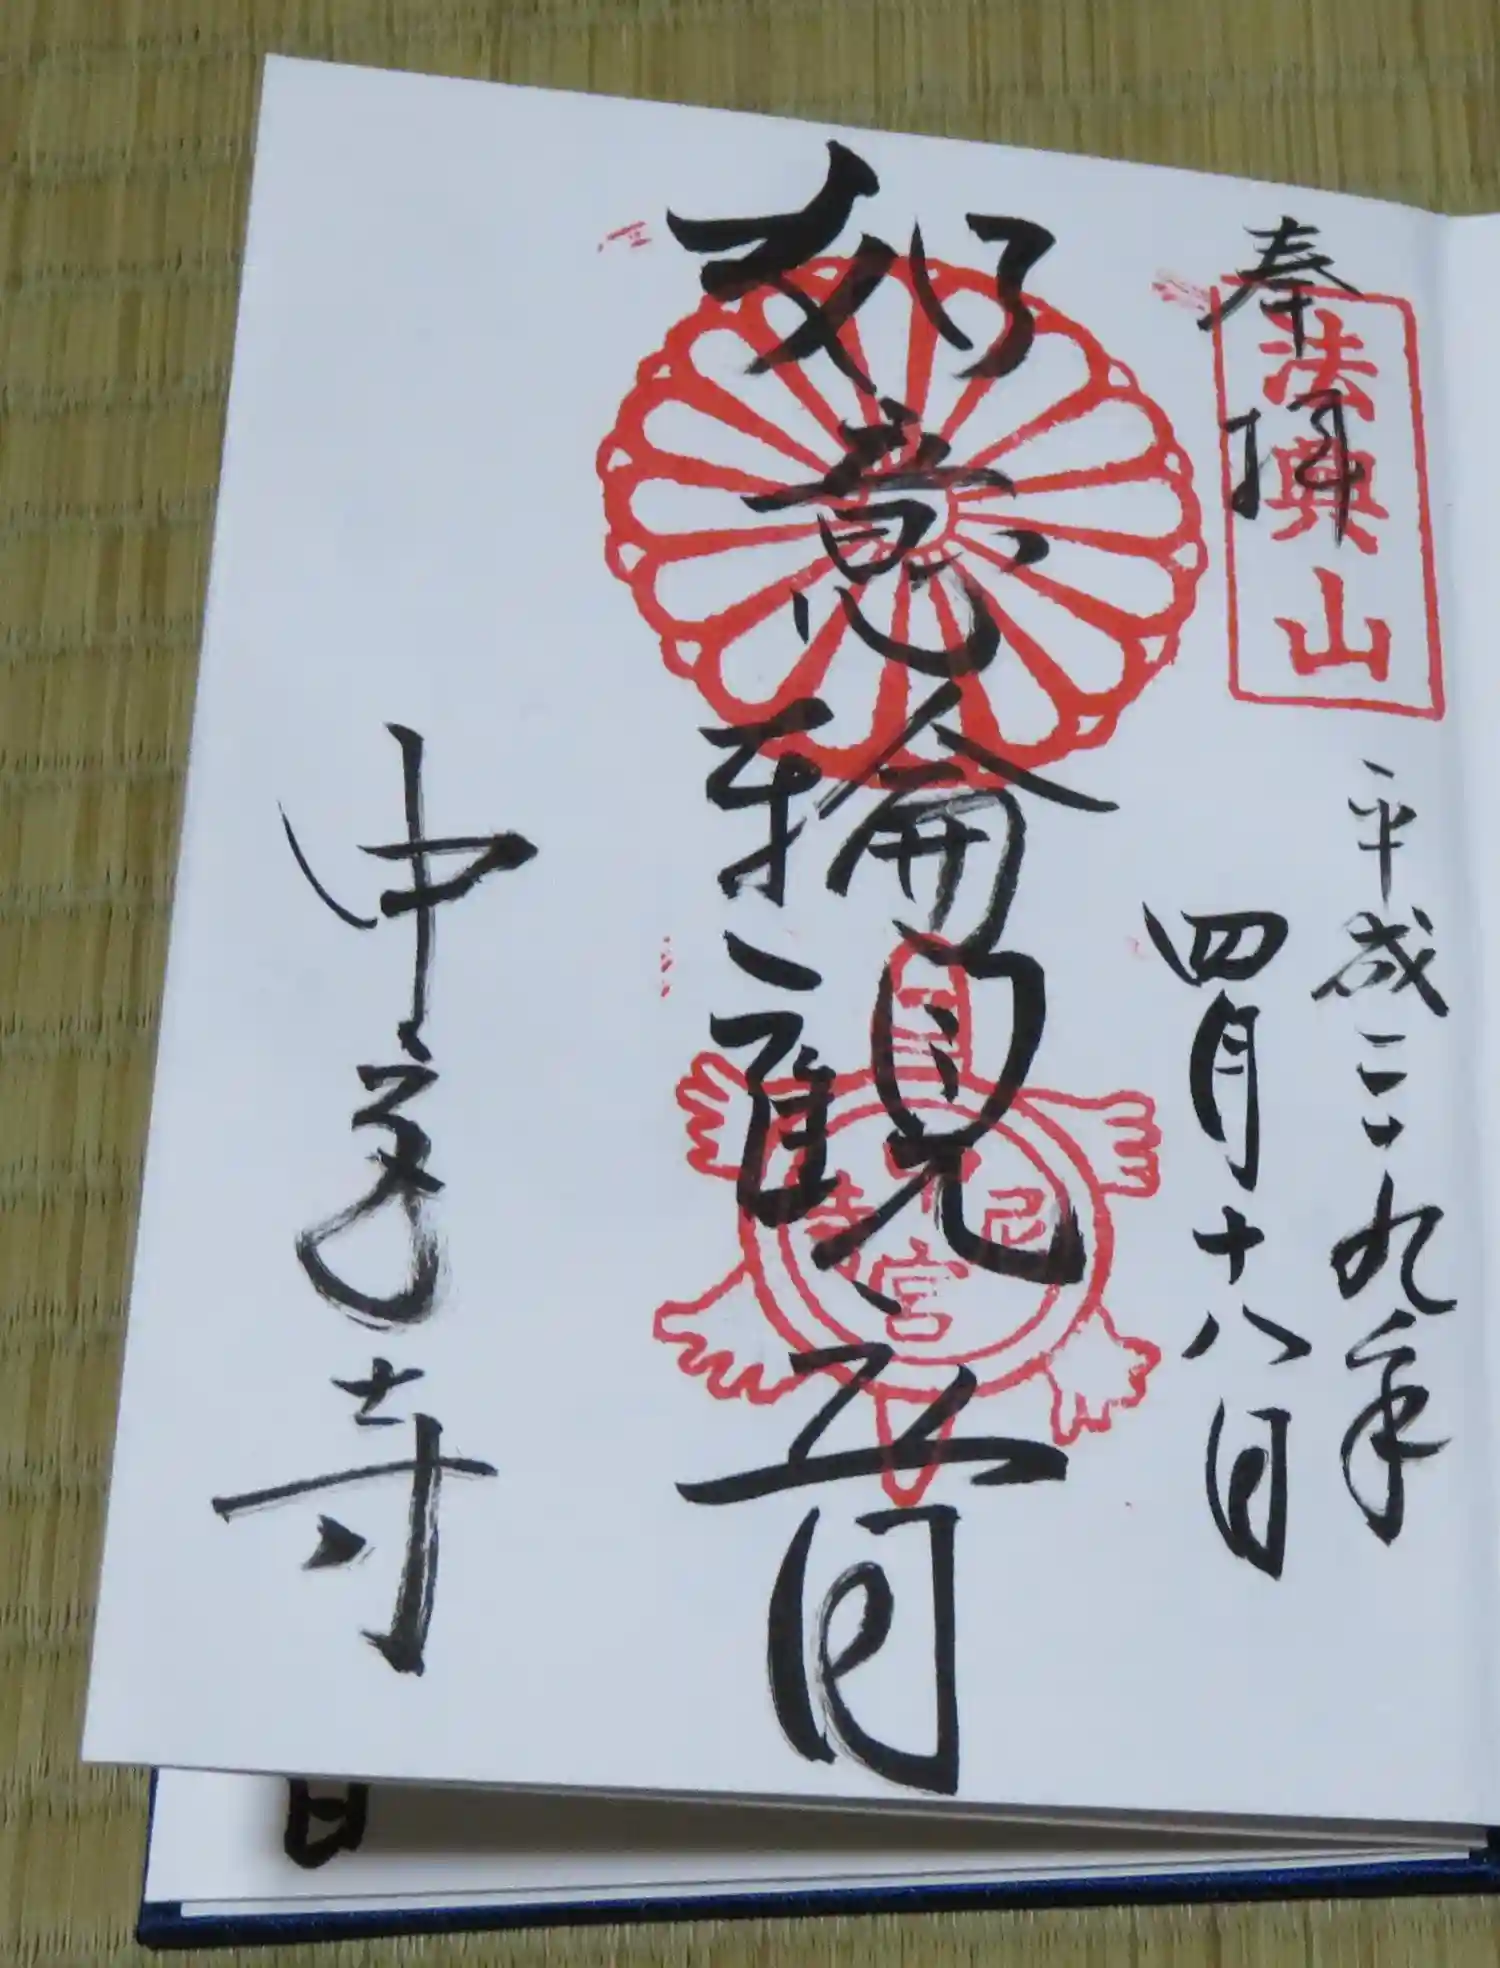 奉拝
法興山
平成二九年
四月十八日
如意輪観音
中宮寺
中宮寺